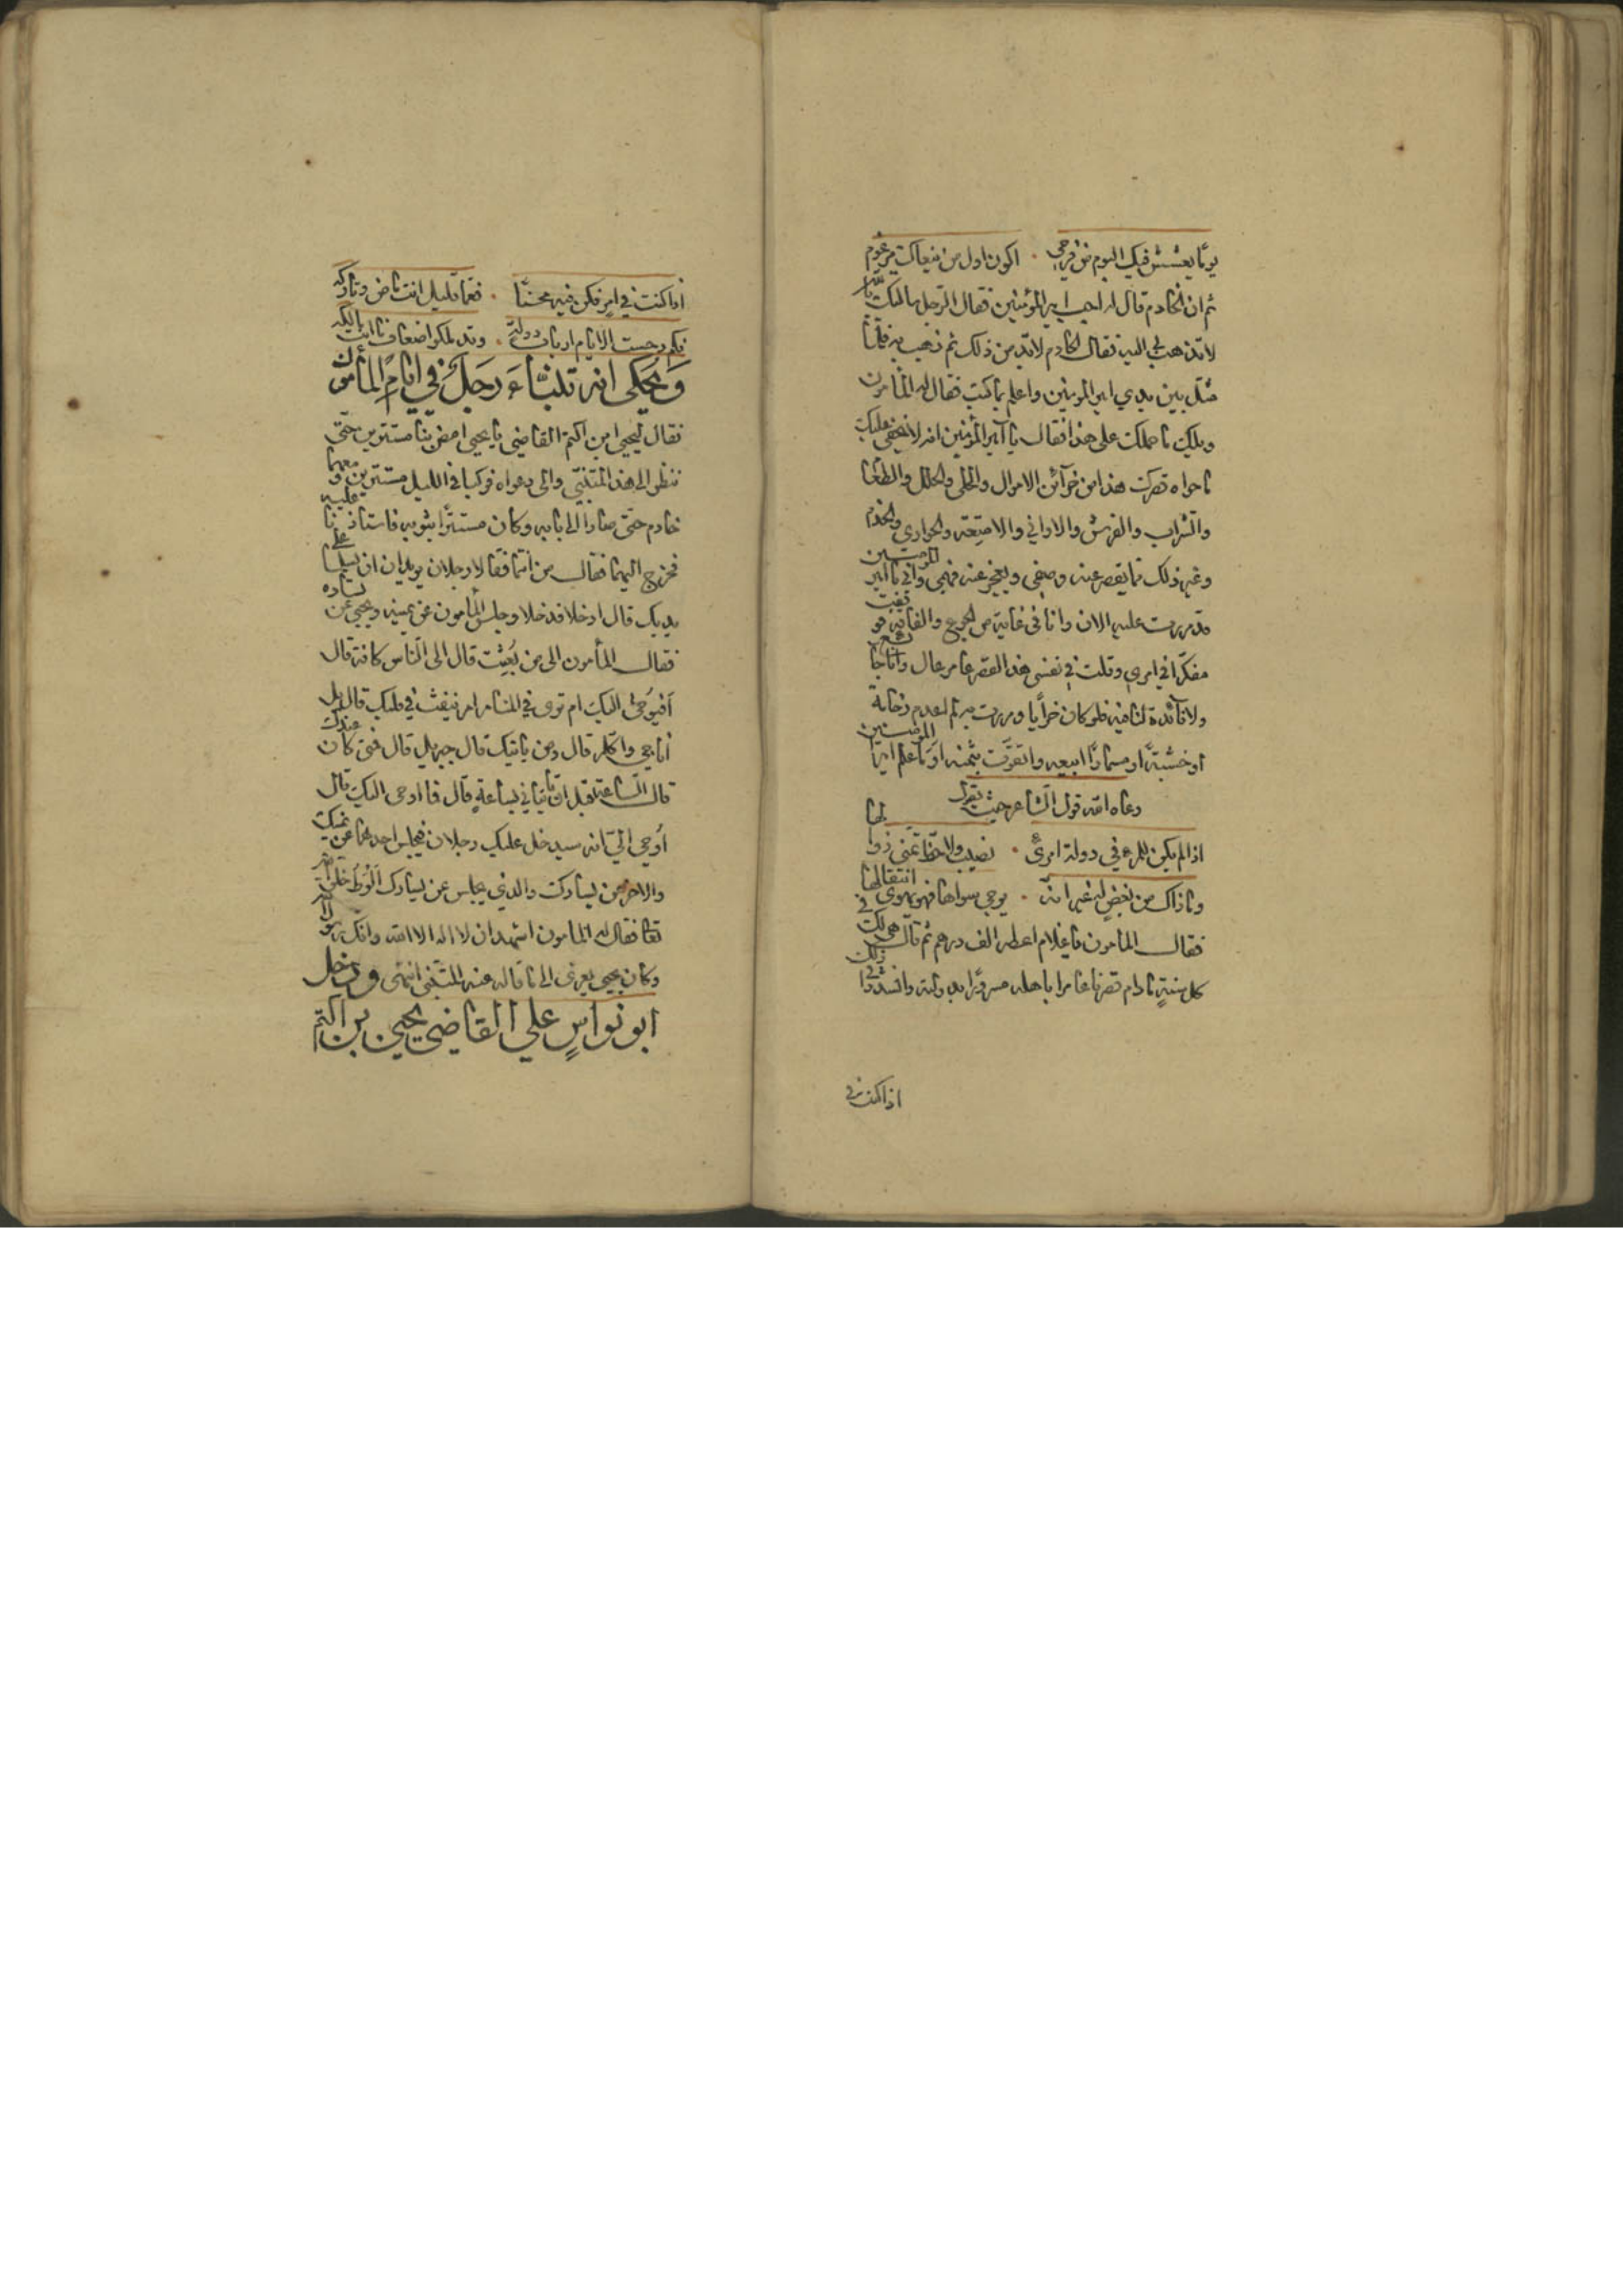 يوما يعشش فيك البوم من فرحي • اكون اول من ينعاك مرغوم
ثم ان الخادم قال له اجب امير المؤمنين فقال الرجل سالتك بالله
لا تذهب بي اليه فقال الخادم لا بد من ذلك ثم ذهب به فلما
مثل بين يدي امير المؤمنين واعلم بما كتب فقال له المأمون
ويلك ما حملك على هذا فقال يا امير المؤمنين انه لا يخفى عليك
ما حواه قصرك هذا من خزآئن الاموال والحلى والحلل والطعام
والشراب والفرش والاواني والامتعة والجوارى والخدم
وغير ذلك مما يقصر عنه وصفى ويعجز عنه فهمي واني يا امير المؤمنين
قد مررت عليه الان وانا فى غاية من الجوع والفاقة فوقفت
مفكرا في امري وقلت في نفسي هذا القصر عامر عال وانا جائع
ولا فائدة لنا فيه فلو كان خرابا ومررت به لم اعدم رخامة
او خشبة او مسمارا ابيعه واتقوت بثمنه او ما علم امير المؤمنين
رعاه الله قول الشاعر حيث يقول
اذا لم يكن للمرء في دولة امرئ • نصيب ولا حظ تمنى زوالها
وما ذاك من بغض لها غير انه • يرجى سواها فهو يهوى انتقالها
فقال المأمون يا غلام اعطه الف درهم ثم قال هي لك في
كل سنة ما دام قصرنا عامرا باهله مسرورا بدولته وانشدوا في ذلك
اذا كنت في
اذا كنت في امر فكن فيه محسنا • فعما قليل انت ماض وتاركه
فكم دحت الايام ارباب دولة • وقد ملكوا اضعاف ما انت مالكه
وَيحكى انه تلبثاءَ رجلٌ في ايامِ المأمون
فقال ليحيى ابن اكتم القاضي يا يحيى امض بنا مستترين حتى
ننظر الى هذا المتنبي والى دعواه فركبا فى الليل مستترين ومعهما
خادم حتى صارا الى بابه وكان مستترا بثوبه فاستاذنا عليه
فخرج اليهما فقال من انتما فقالا رجلان يريدان ان يسلما على
يديك قال ادخلا فدخلا وجلس المأمون عن يمينه ويحيى عن يساره
فقال المأمون الى من بُعِثت قال الى الناس كافة قال
أفيوحى اليك ام ترى في المنام ام ينفث في قلبك قال بل
اناجى واكلم قال ومن ياتيك قال جبريل قال فمتى كان عندك
قال الساعة قبل ان تاتياني بساعة قال فما اوحى اليك قال
أوحي الي انه سيدخل عليك رجلان فيجلس احدهما عن يمينك
والاخر عن يسارك والذي يجلس عن يسارك الوطُ خلق الله
تعا فقال له المأمون اشهد ان لا اله الا الله وانك رسول الله
وكان يحيى يعزى الى ما قاله عنه المتنبى انتهى ودخل
ابو نواسٍ على القاضي يحيى بن اكتم